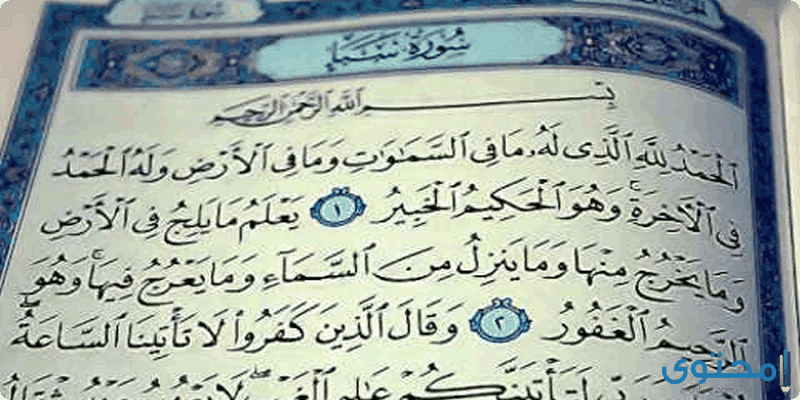 سُورَةُ سَبَإٍ
بِسْمِ اللَّهِ الرَّحْمَٰنِ الرَّحِيمِ
الْحَمْدُ لِلَّهِ الَّذِي لَهُ مَا فِي السَّمَاوَاتِ وَمَا فِي الْأَرْضِ وَلَهُ الْحَمْدُ
فِي الْآخِرَةِ ۚ وَهُوَ الْحَكِيمُ الْخَبِيرُ ١ يَعْلَمُ مَا يَلِجُ فِي الْأَرْضِ
وَمَا يَخْرُجُ مِنْهَا وَمَا يَنزِلُ مِنَ السَّمَاءِ وَمَا يَعْرُجُ فِيهَا ۚ وَهُوَ
الرَّحِيمُ الْغَفُورُ ٢ وَقَالَ الَّذِينَ كَفَرُوا لَا تَأْتِينَا السَّاعَةُ ۖ
لَتَأْتِيَنَّكُمْ عَالِمِ الْغَيْبِ ۖ لَا يَعْزُبُ
محتوى